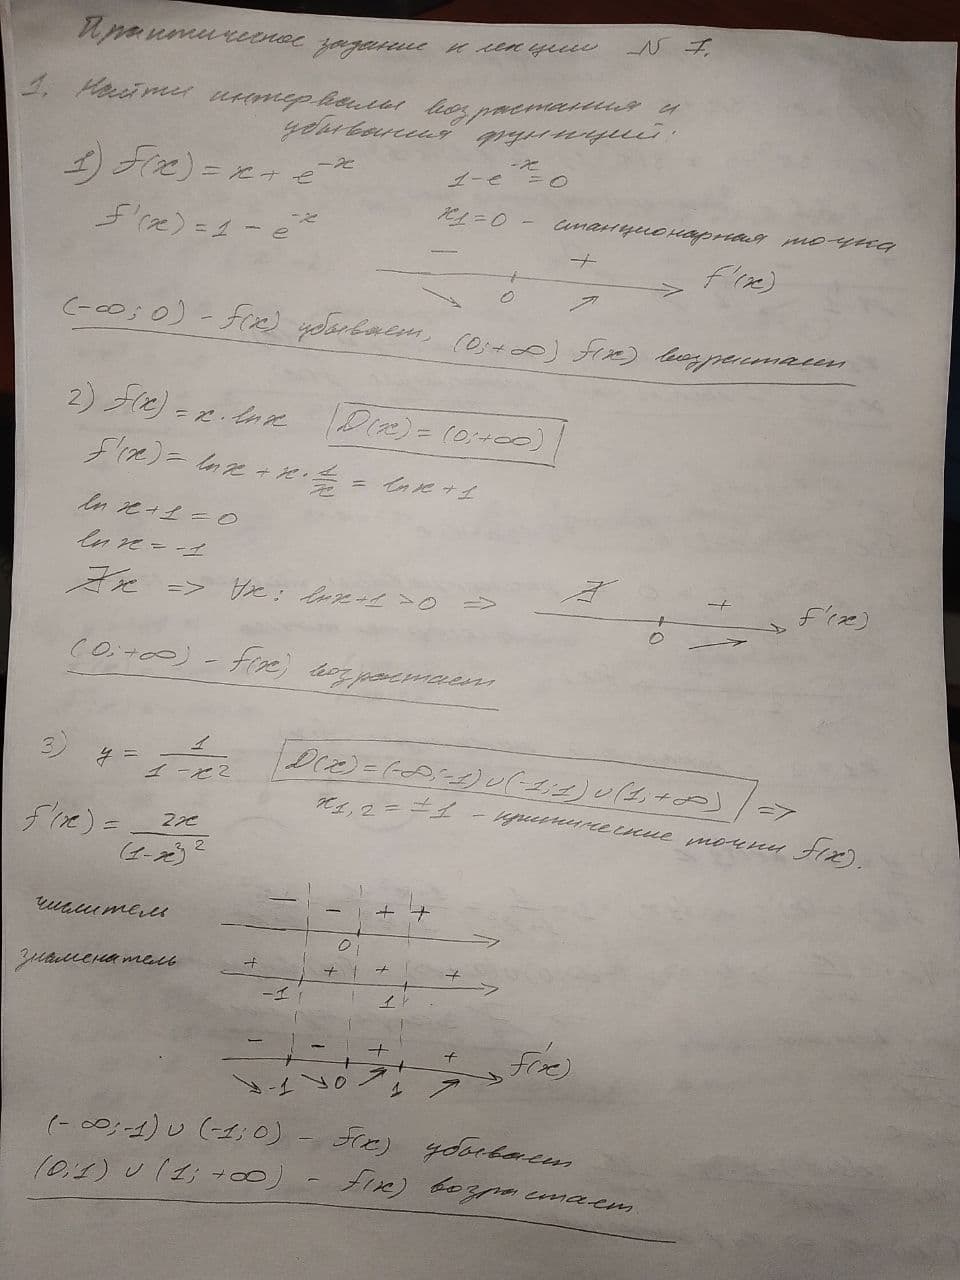 Практическое задание к лекции № 7.
1. Найти интервалы возрастания и
убывания функций:
1) f(x) = x + e^{-x}
1 - e^{-x} = 0
f'(x) = 1 - e^{-x}
x₁ = 0 - стационарная точка
- +
0 f'(x)
(-∞; 0) - f(x) убывает, (0; +∞) f(x) возрастает
2) f(x) = x · ln x D(x) = (0; +∞)
f'(x) = ln x + x · 1/x = ln x + 1
ln x + 1 = 0
ln x = -1
∄ x => ∀x: ln x + 1 > 0 =>
∄ +
0 f'(x)
(0; +∞) - f(x) возрастает
3) y = 1/(1 - x²) D(x) = (-∞; -1) ∪ (-1; 1) ∪ (1; +∞) =>
x₁,₂ = ±1 - критические точки f(x).
f'(x) = 2x/(1-x²)²
числитель - - + +
0
знаменатель + + + +
-1 1
- - + + f'(x)
-1 0 1
(-∞; -1) ∪ (-1; 0) - f(x) убывает
(0; 1) ∪ (1; +∞) - f(x) возрастает